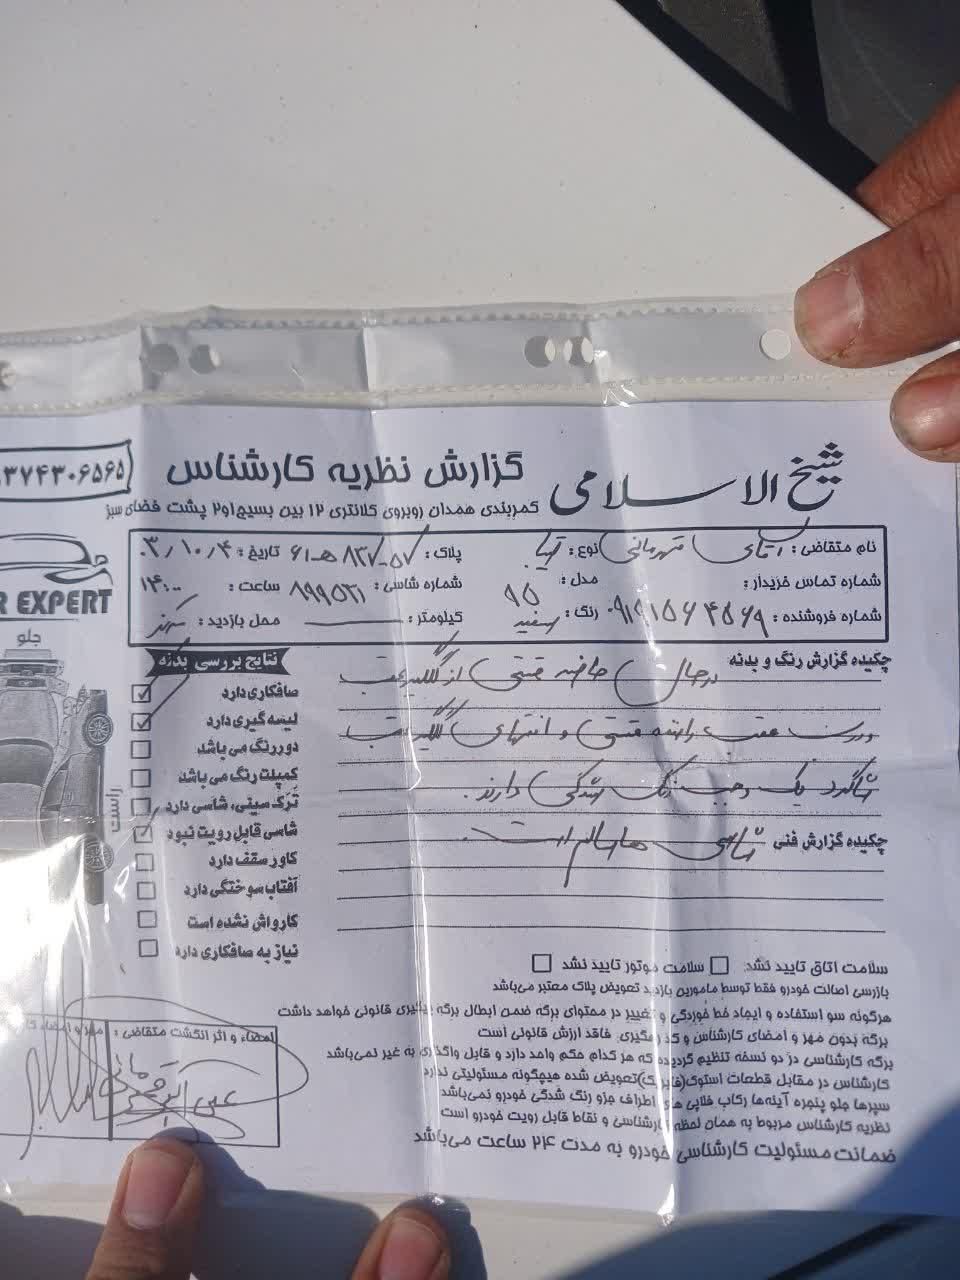 شیخ الاسلامی گزارش نظریه کارشناس
۳۷۴۳۰۶۵۶۵
کمربندی همدان روبروی کلانتری ۱۲ بین بسیج ۱و۲ پشت فضای سبز
نام متقاضی : آقای قهرمانی نوع : تیبا پلاک : ۵۷-۸۲۷ هـ ۶۱ تاریخ : ۰۳/۱۰/۴
شماره تماس خریدار : مدل : ۹۵ شماره شاسی : ۸۹۹۵۲۱ ساعت : ۱۴:۰۰
شماره فروشنده : ۰۹۱۹۱۵۶۴۵۶۹ رنگ : سفید کیلومتر : محل بازدید :
R EXPERT
جلو
راست
چکیده گزارش رنگ و بدنه
در حال حاضر قسمتی از گلگیر عقب
و درب عقب راننده قسمتی و انتهای گلگیر عقب
شاگرد یک وجب رنگ شدگی دارند.
چکیده گزارش فنی شاسی ها سالم است
نتایج بررسی بدنه
صافکاری دارد
لیسه گیری دارد
دوررنگ می باشد
کمپلت رنگ می باشد
ترک سینی، شاسی دارد
شاسی قابل رویت نبود
کاور سقف دارد
آفتاب سوختگی دارد
کارواش نشده است
نیاز به صافکاری دارد
سلامت اتاق تایید نشد: سلامت موتور تایید نشد
بازرسی اصالت خودرو فقط توسط مامورین بازدید تعویض پلاک معتبر می‌باشد
هرگونه سو استفاده و ایجاد خط خوردگی و تغییر در محتوای برگه ضمن ابطال برگه پیگیری قانونی خواهد داشت
برگه بدون مهر و امضای کارشناس و کد رهگیری، فاقد ارزش قانونی است
برگه کارشناسی در دو نسخه تنظیم گردیده که هر کدام حکم واحد دارد و قابل واگذاری به غیر نمی‌باشد
کارشناس در مقابل قطعات استوک(فابریک)تعویض شده هیچگونه مسئولیتی ندارد
سپرها جلو پنجره آینه‌ها رکاب قلابی های اطراف جزو رنگ شدگی خودرو نمی‌باشد
نظریه کارشناس مربوط به همان لحظه کارشناسی و نقاط قابل رویت خودرو است
ضمانت مسئولیت کارشناسی خودرو به مدت ۲۴ ساعت می‌باشد
امضاء و اثر انگشت متقاضی :